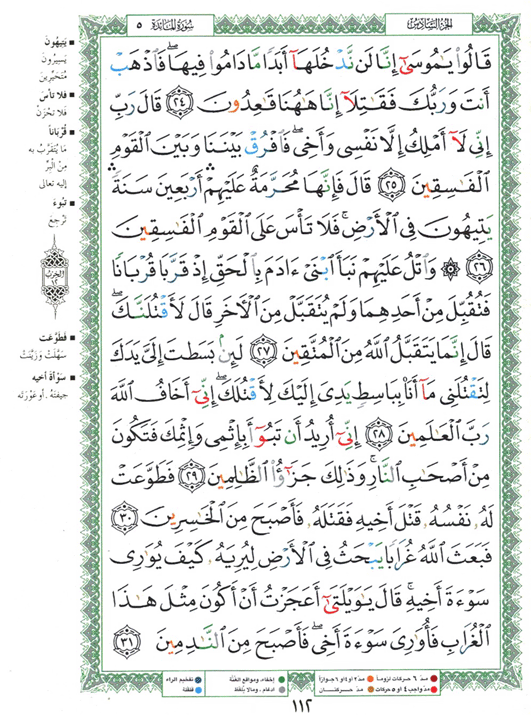 الجزء السادس
سورة المائدة ٥
قَالُوا۟ يَـٰمُوسَىٰٓ إِنَّا لَن نَّدْخُلَهَآ أَبَدًا مَّا دَامُوا۟ فِيهَا ۖ فَٱذْهَبْ
أَنتَ وَرَبُّكَ فَقَـٰتِلَآ إِنَّا هَـٰهُنَا قَـٰعِدُونَ ٢٤ قَالَ رَبِّ
إِنِّى لَآ أَمْلِكُ إِلَّا نَفْسِى وَأَخِى ۖ فَٱفْرُقْ بَيْنَنَا وَبَيْنَ ٱلْقَوْمِ
ٱلْفَـٰسِقِينَ ٢٥ قَالَ فَإِنَّهَا مُحَرَّمَةٌ عَلَيْهِمْ ۛ أَرْبَعِينَ سَنَةً ۛ
يَتِيهُونَ فِى ٱلْأَرْضِ ۚ فَلَا تَأْسَ عَلَى ٱلْقَوْمِ ٱلْفَـٰسِقِينَ
٢٦ ۞ وَٱتْلُ عَلَيْهِمْ نَبَأَ ٱبْنَىْ ءَادَمَ بِٱلْحَقِّ إِذْ قَرَّبَا قُرْبَانًا
فَتُقُبِّلَ مِنْ أَحَدِهِمَا وَلَمْ يُتَقَبَّلْ مِنَ ٱلْـَٔاخَرِ قَالَ لَأَقْتُلَنَّكَ ۖ
قَالَ إِنَّمَا يَتَقَبَّلُ ٱللَّهُ مِنَ ٱلْمُتَّقِينَ ٢٧ لَئِنۢ بَسَطتَ إِلَىَّ يَدَكَ
لِتَقْتُلَنِى مَآ أَنَا۠ بِبَاسِطٍ يَدِىَ إِلَيْكَ لِأَقْتُلَكَ ۖ إِنِّىٓ أَخَافُ ٱللَّهَ
رَبَّ ٱلْعَـٰلَمِينَ ٢٨ إِنِّىٓ أُرِيدُ أَن تَبُوٓأَ بِإِثْمِى وَإِثْمِكَ فَتَكُونَ
مِنْ أَصْحَـٰبِ ٱلنَّارِ ۚ وَذَٰلِكَ جَزَٰٓؤُا۟ ٱلظَّـٰلِمِينَ ٢٩ فَطَوَّعَتْ
لَهُۥ نَفْسُهُۥ قَتْلَ أَخِيهِ فَقَتَلَهُۥ فَأَصْبَحَ مِنَ ٱلْخَـٰسِرِينَ ٣٠
فَبَعَثَ ٱللَّهُ غُرَابًا يَبْحَثُ فِى ٱلْأَرْضِ لِيُرِيَهُۥ كَيْفَ يُوَٰرِى
سَوْءَةَ أَخِيهِ ۚ قَالَ يَـٰوَيْلَتَىٰٓ أَعَجَزْتُ أَنْ أَكُونَ مِثْلَ هَـٰذَا
ٱلْغُرَابِ فَأُوَٰرِىَ سَوْءَةَ أَخِى ۖ فَأَصْبَحَ مِنَ ٱلنَّـٰدِمِينَ ٣١
يَتِيهُونَ
يَسِيرُونَ
مُتَحَيِّرِينَ
فَلا تأسَ
فَلا تَحْزَنْ
قُرْبَاناً
مَا يُتَقَرَّبُ بِهِ
مِنَ الْبِرِّ
إليه تعالى
تَبُوءَ
تَرْجِعَ
الحزب
١٢
فَطَوَّعَت
سَهَّلَتْ وَزَيَّنَتْ
سَوْأةَ أخيه
جيفَتَهُ . أو عَوْرَتَه
مدّ ٦ حركات لزوماً
مدّ ٢ أو ٤ أو ٦ جوازاً
إخفاء، ومواقع الغُنَّة
تفخيم الراء
مدّ واجب ٤ أو ٥ حركات
مدّ حركتان
إدغام ، ومالا يُلفَظ
قلقلة
١١٢